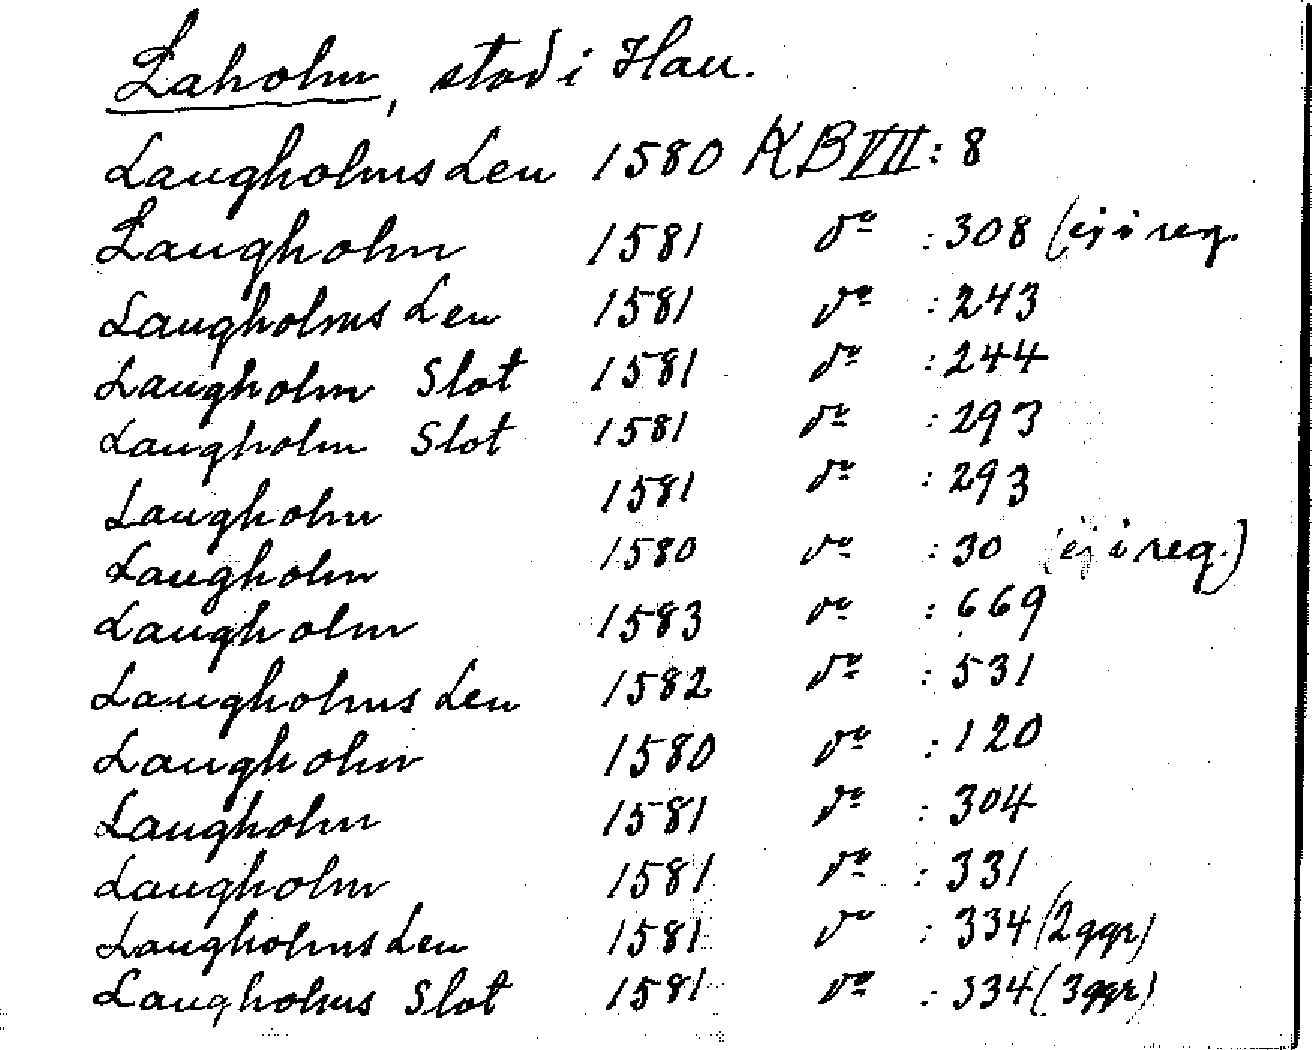 Laholm, stad i Hall.
Laugholms Len 1580 KB VII: 8
Laugholm 1581 do : 308 (ej i reg.
Laugholms Len 1581 do : 243
Laugholm Slot 1581 do : 244
Laugholm Slot 1581 do : 293
Laugholm 1581 do : 293
Laugholm 1580 do : 30 (ej i reg.)
Laugholm 1583 do : 669
Laugholms Len 1582 do : 531
Laugholm 1580 do : 120
Laugholm 1581 do : 304
Laugholm 1581 do : 331
Laugholms Len 1581 do : 334 (2 ggr)
Laugholms Slot 1581 do : 334 (3 ggr)